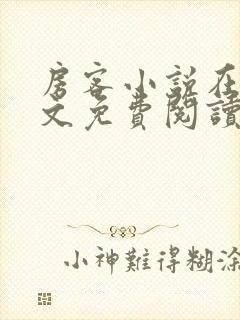 房客小说在
文免費閱讀
小神難得糊涂